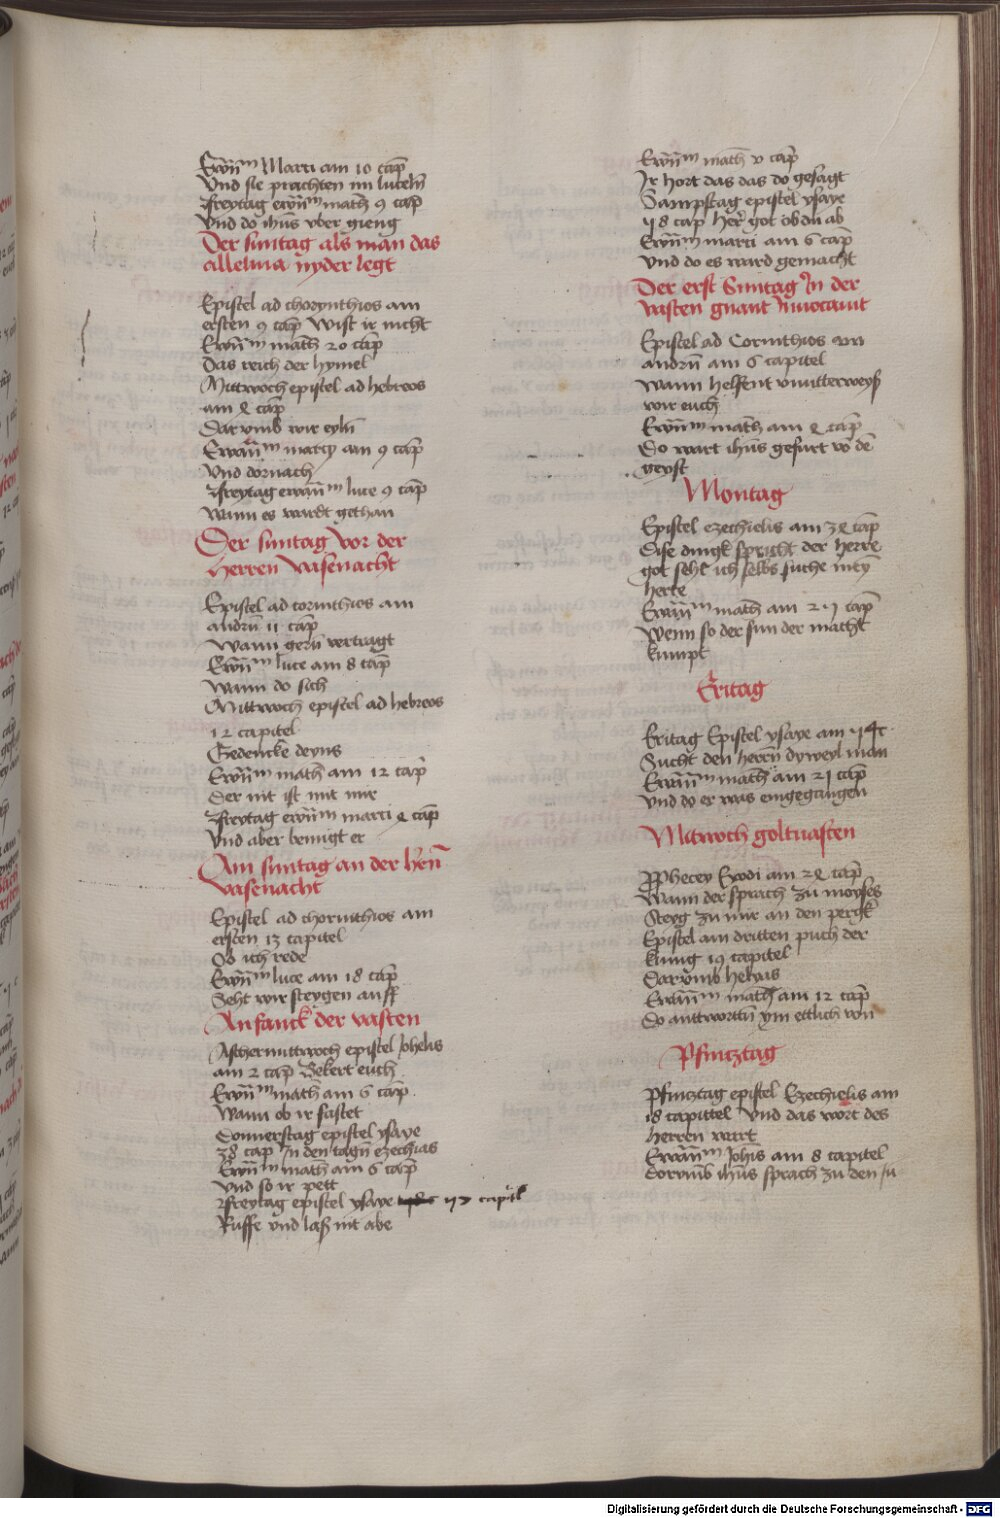 Ewū̄m Marci am 10 cap̄
Vnd sie prachten im lutzeln̄
Freytag ewn̄m math̄ 9 cap̄
Vnd do ih̄us vber gieng
Der suntag als man das
alleluia nyder legt
Epistel ad chorynthios am
ersten 9 cap̄ Wist ir nicht
Ewn̄m math̄ 20 cap̄
Das reich der hymel
Mittwoch epistel ad hebreos
am 4 cap̄
Darumb wir eyln̄
Ewān̄m marcy am 9 cap̄
Vnd dornach
Freytag ewān̄m luce 9 cap̄
Wann es wardt gethan
Der suntag vor der
herren vasenacht
Epistel ad corinthios am
andrn̄ 11 cap̄
Wann gern̄ vertragt
Ewn̄m luce am 8 cap̄
Wann do sich
Mittwoch epistel ad hebreos
12 capitel
Gedencke deyns
Ewn̄m math̄ am 12 cap̄
Der nit ist mit mir
Freytag ewn̄m marci 4 cap̄
Vnd aber benugt er
Am suntag an der hern̄
vasenacht
Epistel ad chorinthios am
ersten 13 capitel
Ob ich rede
Ewn̄m luce am 18 cap̄
Seht wir steygen auff
Anfanck der vasten
Aschermittwoch epistel Johelis
am 2 cap̄ Bekert euch
Ewn̄m math̄ am 6 cap̄
Wann ob ir fastet
Donnerstag epistel ysaye
38 cap̄ In den tagn̄ ezechias
Ewn̄m math̄ am 6 cap̄
Vnd so ir pett
Freytag epistel ysaye capitl
Ruffe vnd laß nit abe
Ewn̄m math̄ v cap̄
Ir hort das das do gesagt
Sampstag epistel ysaye
cap̄ her got ob du ab
Ewn̄m marci am 6 cap̄
Vnd do es ward gemacht
Der erst Suntag In der
vasten gnant Inuocauit
Epistel ad Corinthios am
andrn̄ am 6 capitel
Wann helfent
wir euch
Ewn̄m math̄ am 4 cap̄
Do wart ih̄us gefurt vō dē
geyst
Montag
Epistel ezechielis am 34 cap̄
Dise dingk spricht der herre
got seht ich selbs suche meȳ
herte
Ewān̄m math̄ am cap̄
Wenn so der sun der macht
kumpt
Eritag
Eritag Epistel ysaye am
Sucht den herrn̄ dyweyl man
Ewān̄m math̄ am 21 cap̄
Vnd do er was eingegangen
Mitwoch goltuasten
Pphecey Exodi am 24 cap̄
Wann der sprach zu moyses
Steyg zu mir an den pergk
Epistel am dritten puch der
kunig 19 capitel
Darumb helyas
Ewān̄m math̄ am 12 cap̄
Do anttwortn̄ ym ettlich von
Pfincztag
Pfincztag epistel Ezechielis am
18 capittel Vnd das wort des
herren wart
Ewān̄m Joh̄is am 8 capitel
Dorumb ih̄us sprach zu den Ju
Digitalisierung gefördert durch die Deutsche Forschungsgemeinschaft - DFG